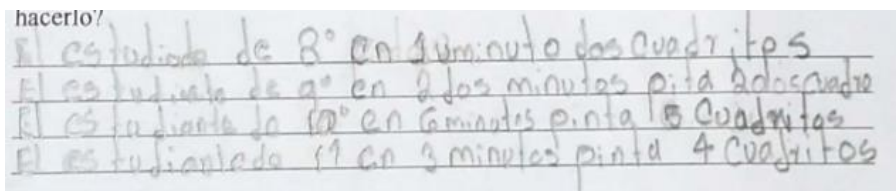 hacerlo?
El estudiante de 8° en 1 minuto dos cuadritos
El estudiante de 9° en 2 dos minutos pita 2 dos cuadro
El estudiante de 10° en 6 minutos pinta 8 cuadritos
El estudiante de 11 en 3 minutos pinta 4 cuadritos